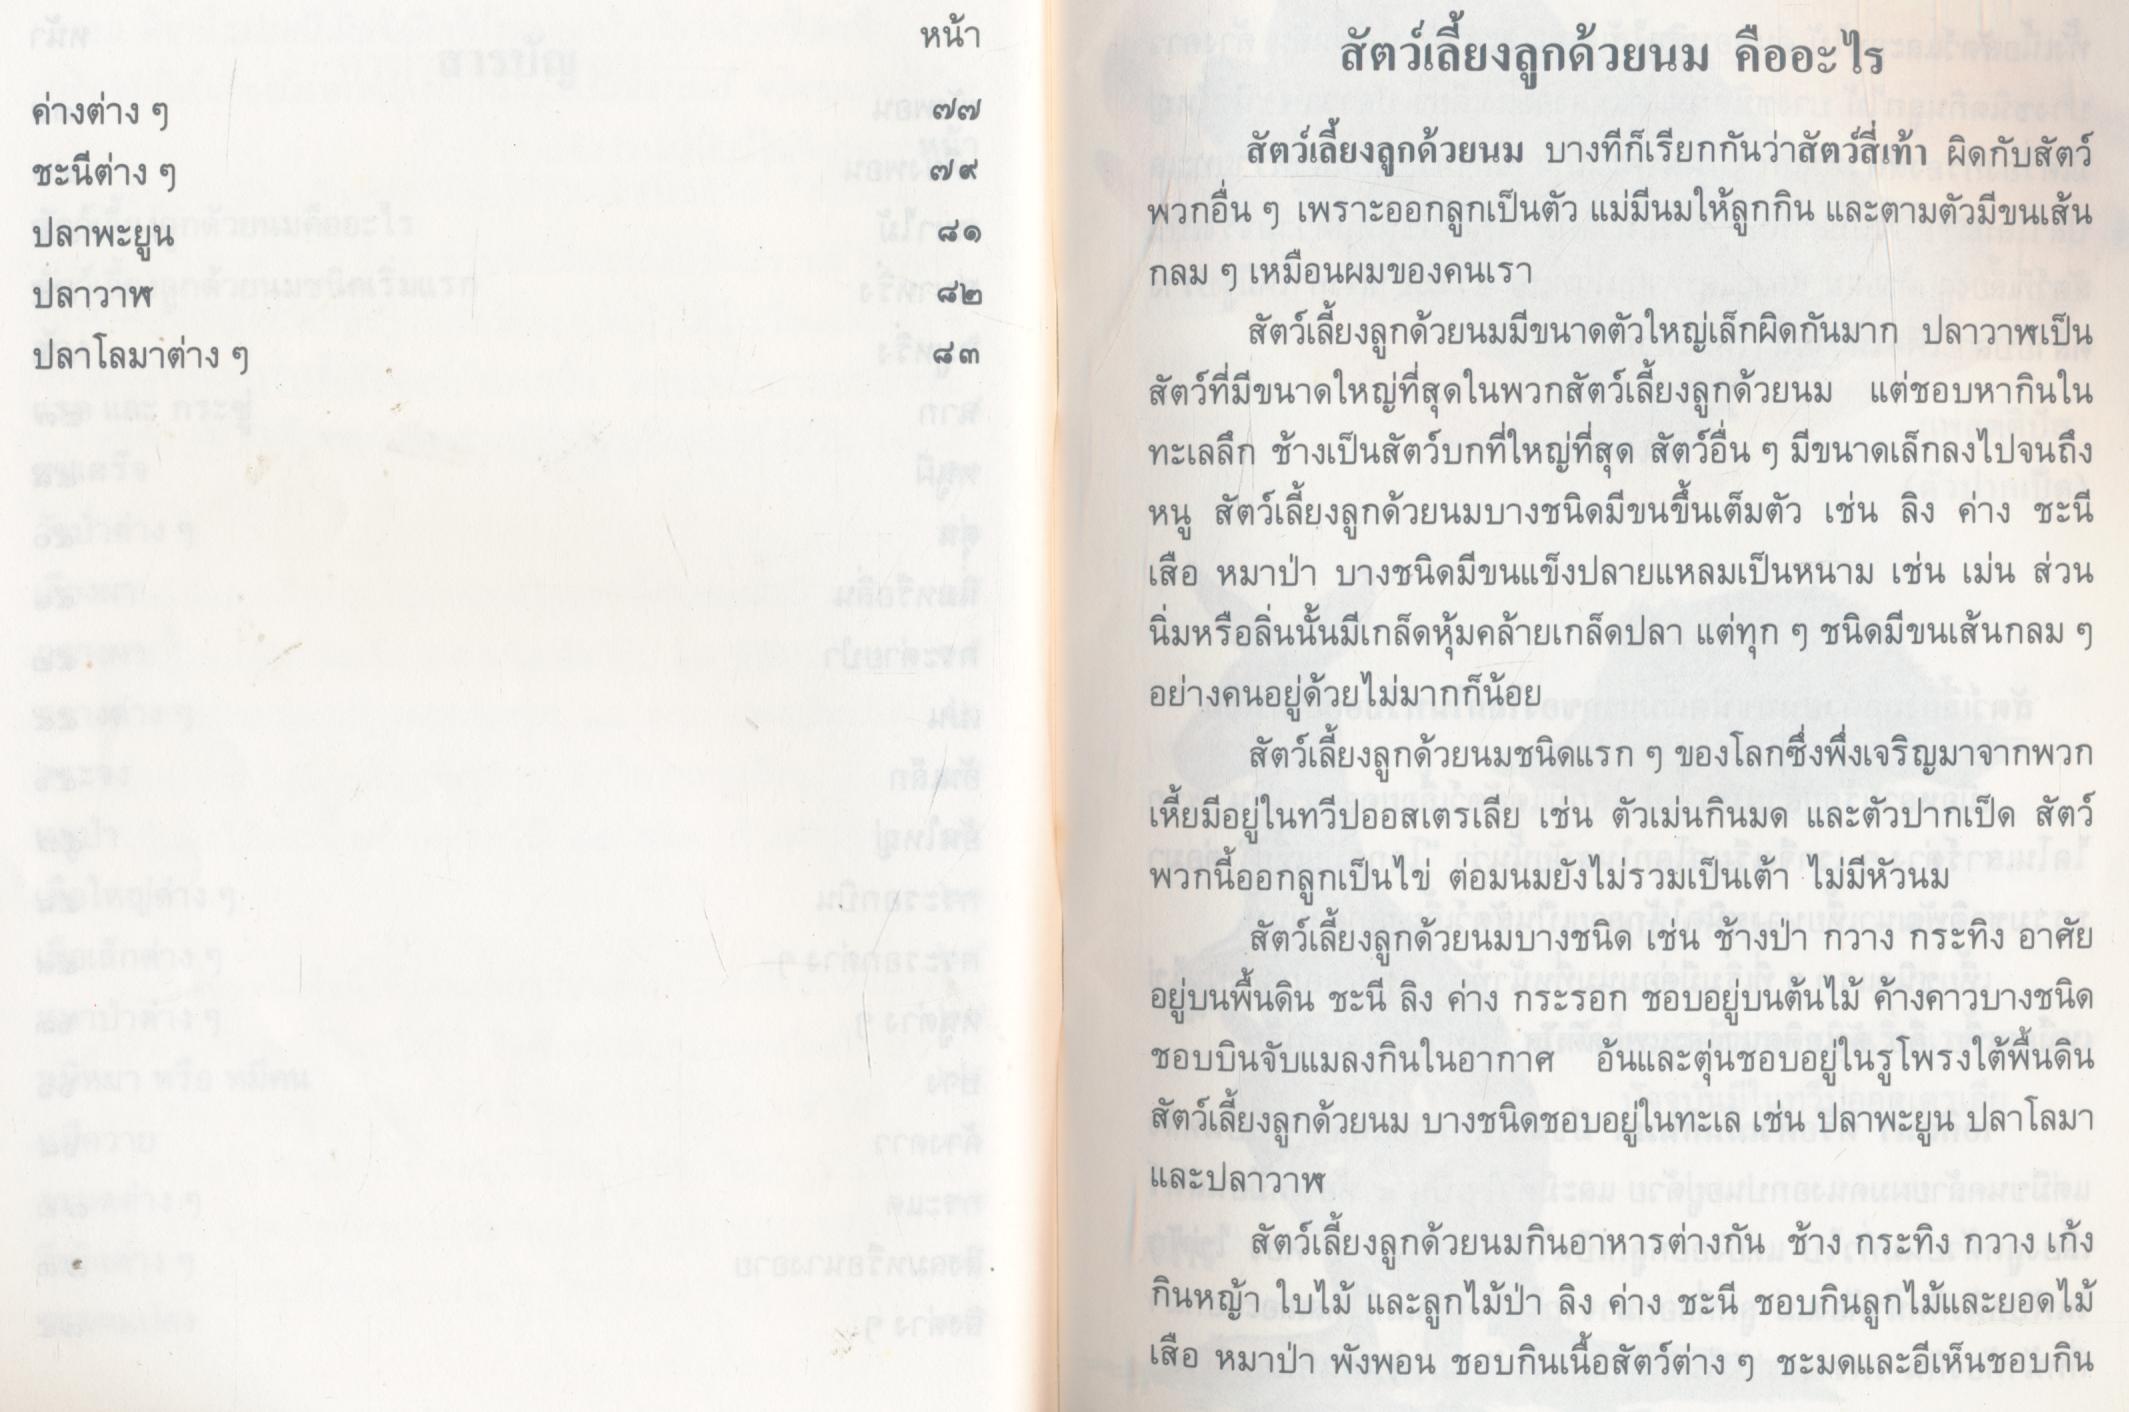 หน้า
ค่างต่าง ๆ ๗๗
ชะนีต่าง ๆ ๗๙
ปลาพะยูน ๘๑
ปลาวาฬ ๘๒
ปลาโลมาต่าง ๆ ๘๓
สัตว์เลี้ยงลูกด้วยนม คืออะไร
สัตว์เลี้ยงลูกด้วยนม บางทีก็เรียกกันว่าสัตว์สี่เท้า ผิดกับสัตว์
พวกอื่น ๆ เพราะออกลูกเป็นตัว แม่มีนมให้ลูกกิน และตามตัวมีขนเส้น
กลม ๆ เหมือนผมของคนเรา
สัตว์เลี้ยงลูกด้วยนมมีขนาดตัวใหญ่เล็กผิดกันมาก ปลาวาฬเป็น
สัตว์ที่มีขนาดใหญ่ที่สุดในพวกสัตว์เลี้ยงลูกด้วยนม แต่ชอบหากินใน
ทะเลลึก ช้างเป็นสัตว์บกที่ใหญ่ที่สุด สัตว์อื่น ๆ มีขนาดเล็กลงไปจนถึง
หนู สัตว์เลี้ยงลูกด้วยนมบางชนิดมีขนขึ้นเต็มตัว เช่น ลิง ค่าง ชะนี
เสือ หมาป่า บางชนิดมีขนแข็งปลายแหลมเป็นหนาม เช่น เม่น ส่วน
นิ่มหรือลิ่นนั้นมีเกล็ดหุ้มคล้ายเกล็ดปลา แต่ทุก ๆ ชนิดมีขนเส้นกลม ๆ
อย่างคนอยู่ด้วยไม่มากก็น้อย
สัตว์เลี้ยงลูกด้วยนมชนิดแรก ๆ ของโลกซึ่งพึ่งเจริญมาจากพวก
เหี้ยมีอยู่ในทวีปออสเตรเลีย เช่น ตัวเม่นกินมด และตัวปากเป็ด สัตว์
พวกนี้ออกลูกเป็นไข่ ต่อมนมยังไม่รวมเป็นเต้า ไม่มีหัวนม
สัตว์เลี้ยงลูกด้วยนมบางชนิด เช่น ช้างป่า กวาง กระทิง อาศัย
อยู่บนพื้นดิน ชะนี ลิง ค่าง กระรอก ชอบอยู่บนต้นไม้ ค้างคาวบางชนิด
ชอบบินจับแมลงกินในอากาศ อ้นและตุ่นชอบอยู่ในรูโพรงใต้พื้นดิน
สัตว์เลี้ยงลูกด้วยนม บางชนิดชอบอยู่ในทะเล เช่น ปลาพะยูน ปลาโลมา
และปลาวาฬ
สัตว์เลี้ยงลูกด้วยนมกินอาหารต่างกัน ช้าง กระทิง กวาง เก้ง
กินหญ้า ใบไม้ และลูกไม้ป่า ลิง ค่าง ชะนี ชอบกินลูกไม้และยอดไม้
เสือ หมาป่า พังพอน ชอบกินเนื้อสัตว์ต่าง ๆ ชะมดและอีเห็นชอบกิน